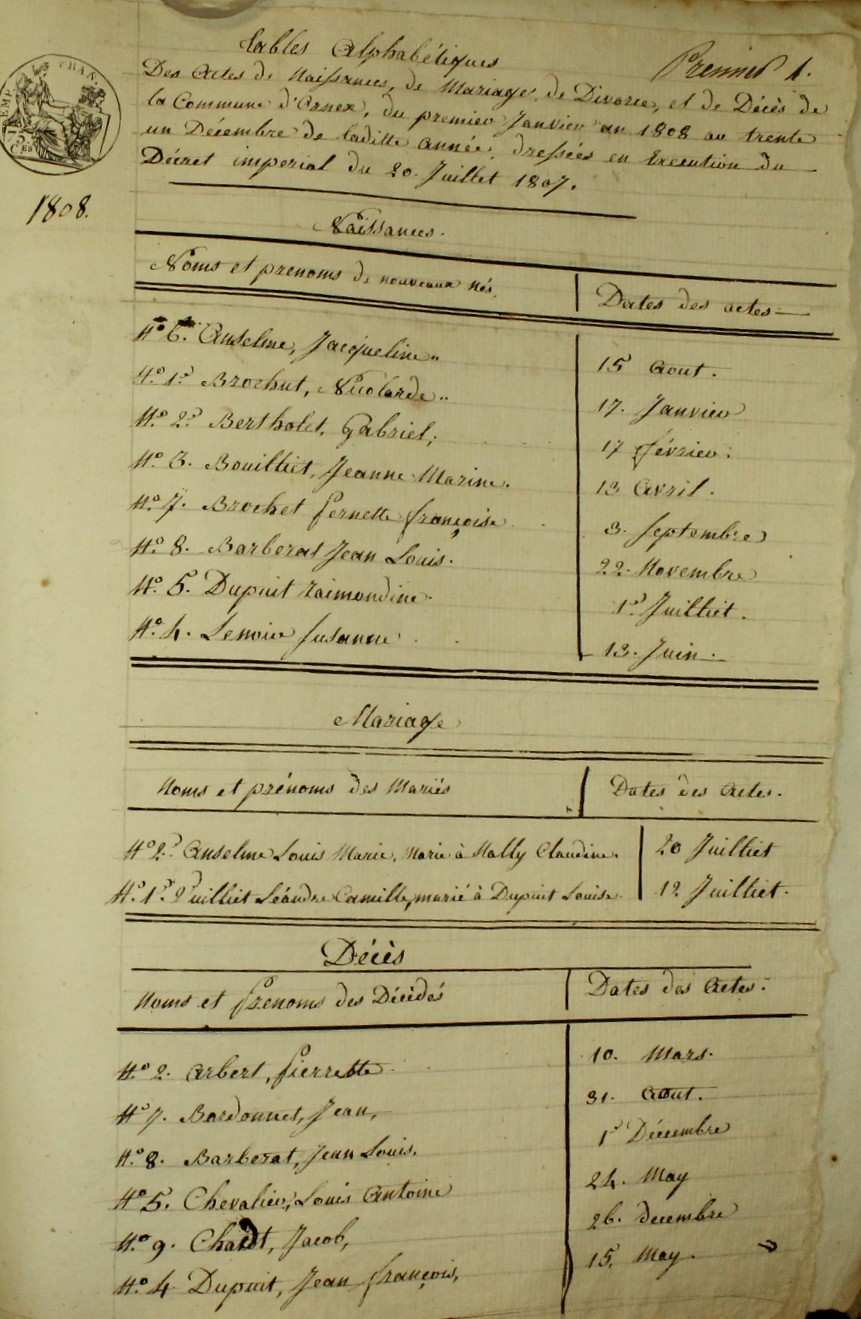 Tables Alphabétiques
Premier 1.
Des Actes de Naissances, de Mariage, de Divorce, et de Décès de
la Commune d'Ornex, du premier Janvier an 1808 au trente
un Décembre de laditte année, dressées en Execution du
Décret imperial du 20. Juillet 1807.
1808.
Naissances.
Noms et prenoms de nouveaux nés. Dates des actes
No. 6. Anselme, Jacqueline 15 Aout.
No. 1er Brochut, Nicolarde 17. Janvier
No. 2. Bertholet, Gabriel, 17 février.
No. 3. Bouilliet, Jeanne Marine. 13 Avril.
No. 7. Brochet pernette françoise 3. Septembre
No. 8. Barberat Jean Louis. 22. Novembre
No. 5. Dupuit raimondine 1er Juilliet.
No. 4. Lenoir Susanne 13. Juin.
Mariage
Noms et prénoms des Mariés Dates des Actes.
No 2. Anselme Louis Marie, Marié à Mally Claudine. 20 Juilliet
No. 1er Léandre Camille, marié à Dupuit Louise 12 Juilliet.
Décès
Noms et Prenoms des Décédés Dates des Actes.
No. 2. Arbert, pierrette 10. Mars.
No. 7. Bordonnet, Jean, 31. Aout.
No. 8. Barberat, Jean Louis. 1er Décembre
No. 5. Chevalier, Louis Antoine 24. May
No. 9. Jacob, 26. decembre
No. 4 Dupuit, Jean françois, 15. May.